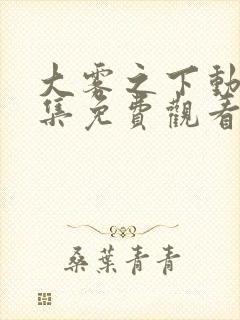 大雾之下動
集免費觀看
桑葉青青